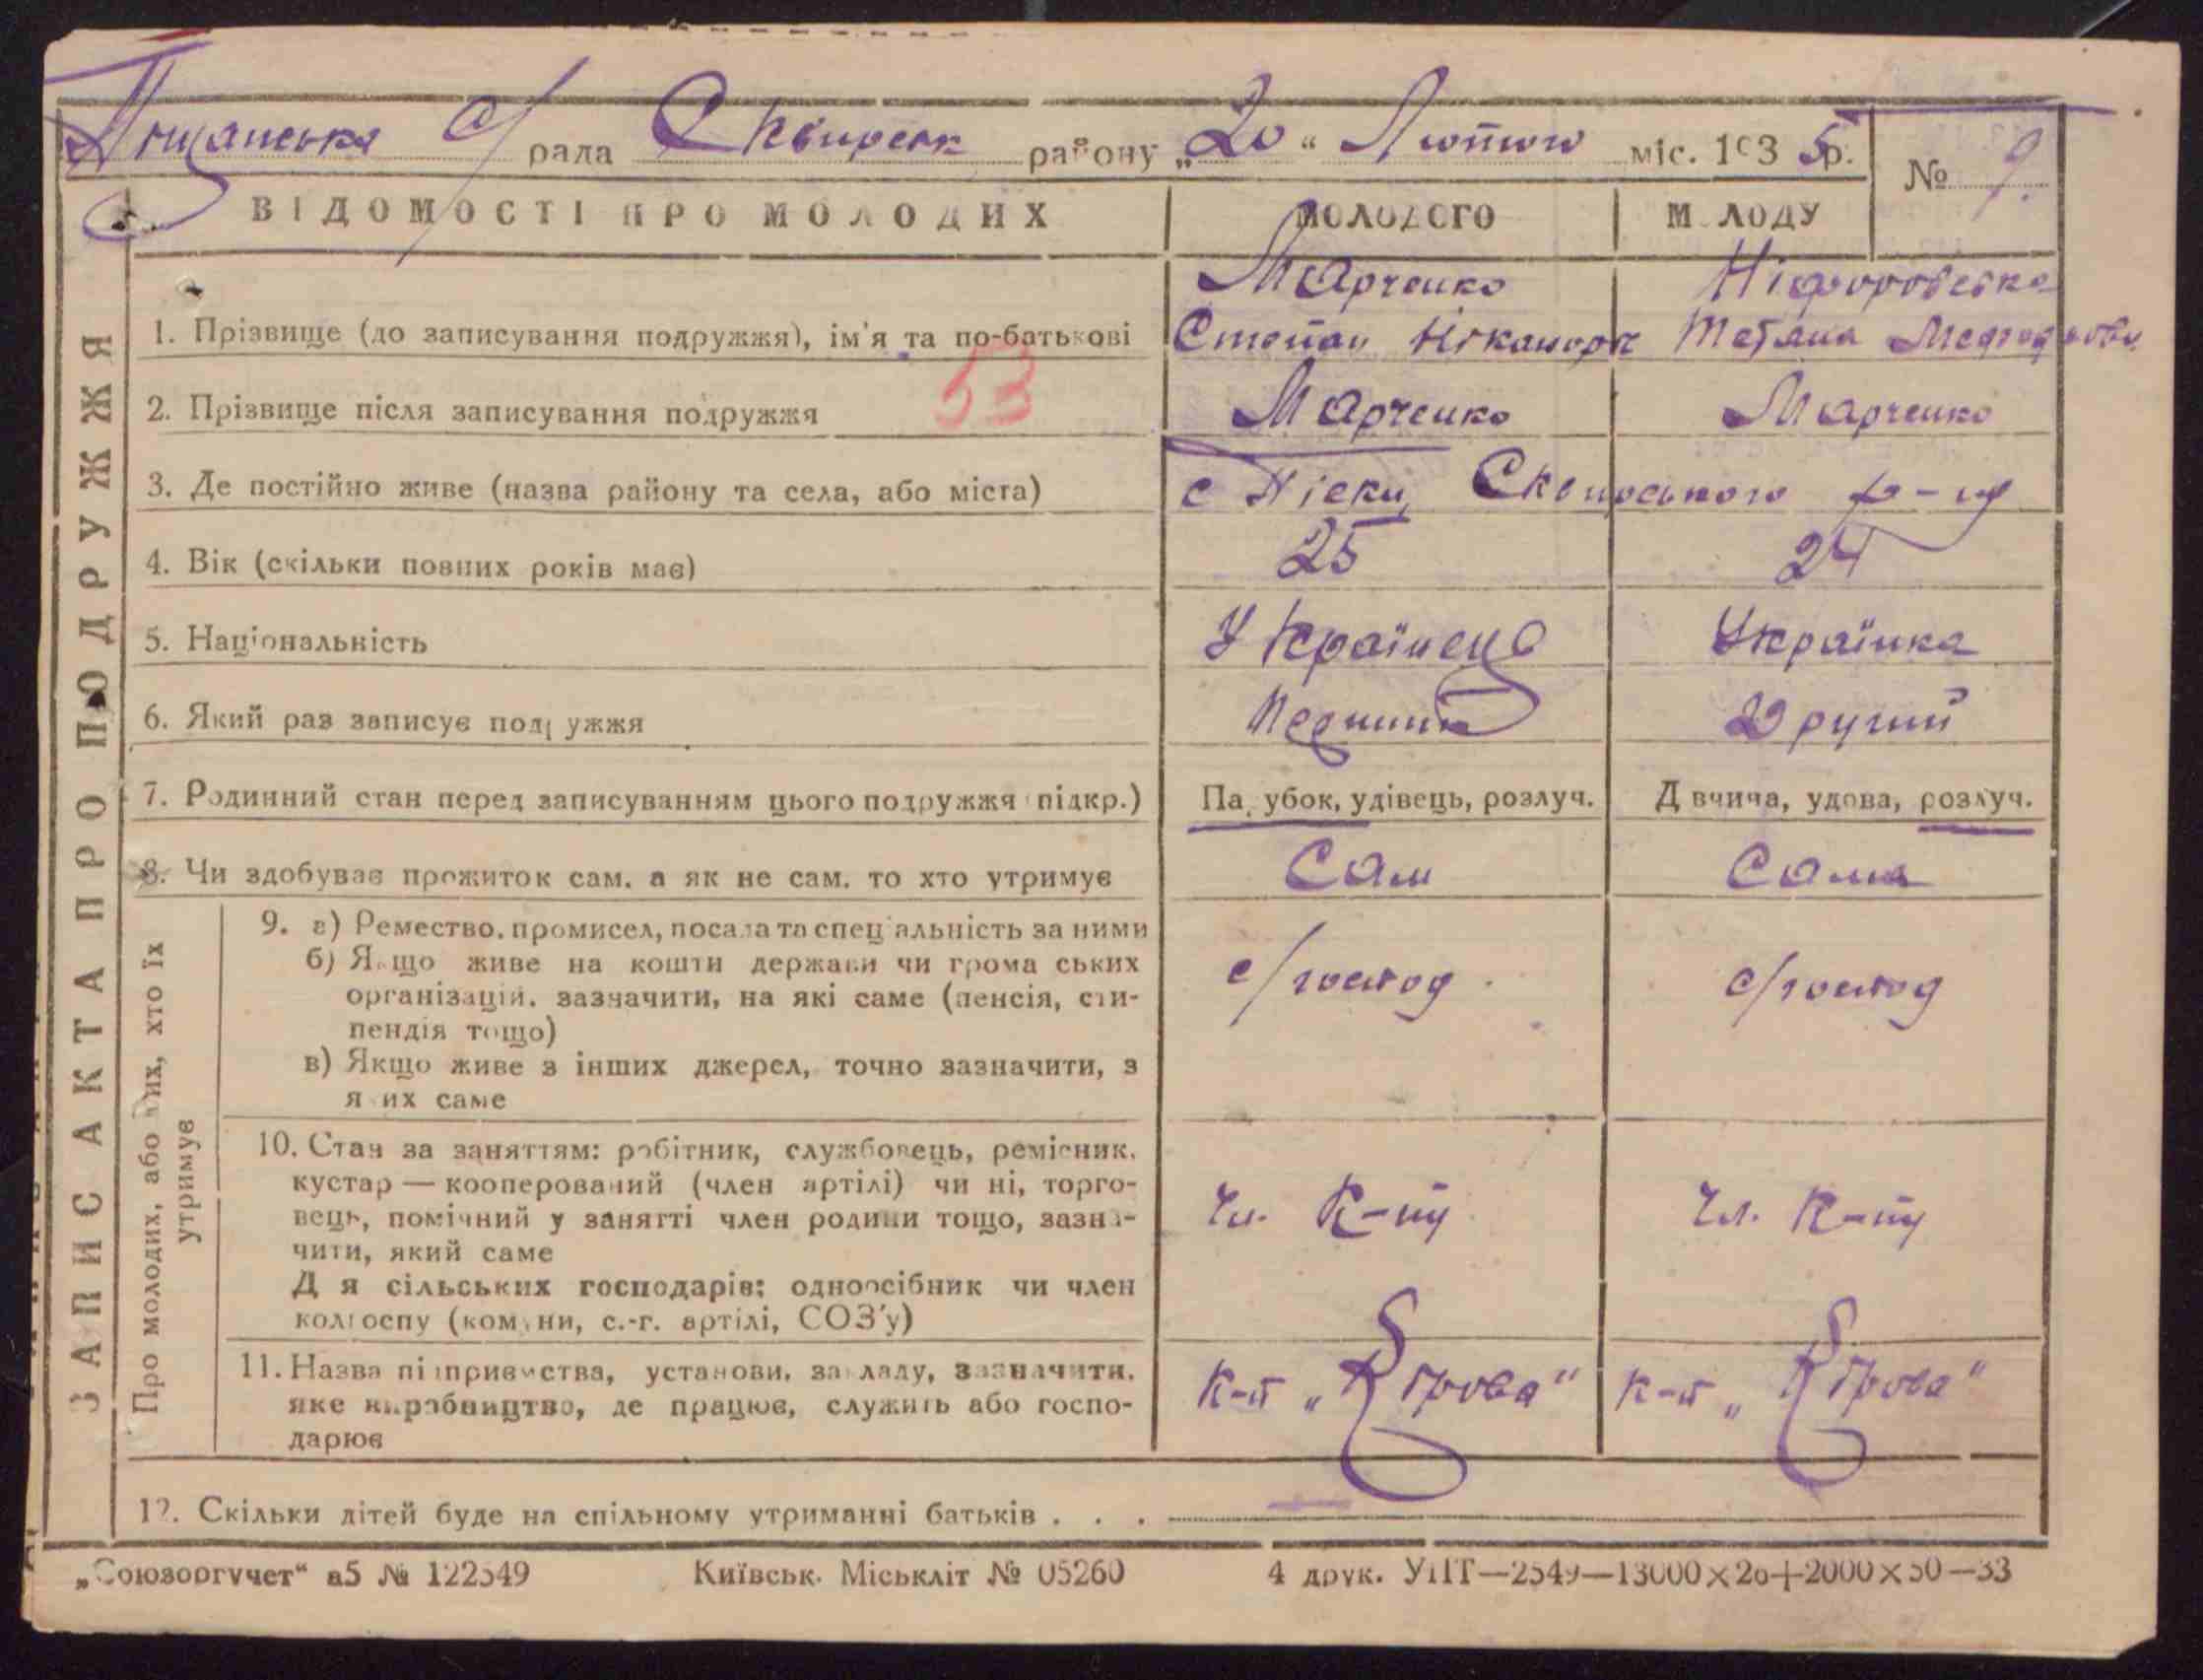 Піщанська с/рада Сквирськ району „20“ Лютого міс. 1935р. № 9
ВІДОМОСТІ ПРО МОЛОДИХ МОЛОДОГО МОЛОДУ
Марченко
1. Прізвище (до записування подружжя), ім'я та по-батькові Степан Ніканорч Тетяна
53
2. Прізвище після записування подружжя Марченко Марченко
3. Де постійно живе (назва району та села, або міста) с Піски Сквирського р-ну
4. Вік (скільки повних років має) 25 24
5. Національність Українець Українка
6. Який раз записує подружжя Другий
7. Родинний стан перед записуванням цього подружжя (підкр.) Парубок, удівець, розлуч. Дівчина, удова, розлуч.
8. Чи здобуває прожиток сам, а як не сам, то хто утримує Сам Сама
9. а) Ремество, промисел, посада та спеціальність за ними с/господ с/господ
б) Якщо живе на кошти держави чи громадських
організацій, зазначити, на які саме (пенсія, сти-
пендія тощо)
в) Якщо живе з інших джерел, точно зазначити, з
яких саме
10. Стан за заняттям: робітник, службовець, ремісник,
кустар — кооперований (член артілі) чи ні, торго-
вець, помічний у занятті член родини тощо, зазна-
чити, який саме Чл. К-пу Чл. К-пу
Для сільських господарів: одноосібник чи член
колгоспу (комуни, с.-г. артілі, СОЗ'у)
11. Назва підприємства, установи, закладу, зазначити, К-п „Кірова“ К-п „Кірова“
яке виробництво, де працює, служить або госпо-
дарює
12. Скільки дітей буде на спільному утриманні батьків . . . —
ЗАПИС АКТА ПРО ПОДРУЖЖЯ
Про молодих, або них, хто їх
утримує
„Союзоргучет“ а5 № 122549 Київськ. Міськліт № 05260 4 друк. УПТ—2549—13000×20+2000×50—33